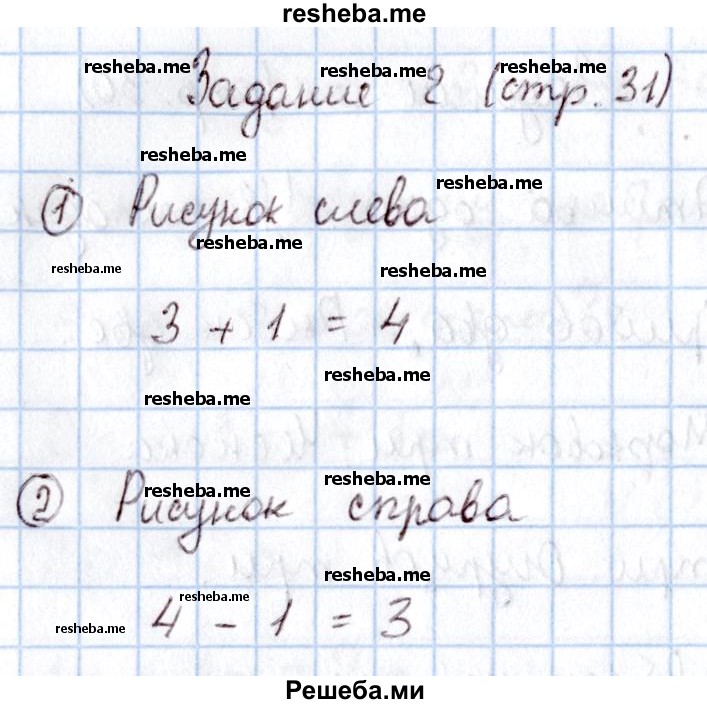 resheba.me
resheba.me resheba.me resheba.me
Задание 2 (стр. 31)
resheba.me
resheba.me
1 Рисунок слева
resheba.me
resheba.me resheba.me
3 + 1 = 4
resheba.me
resheba.me
resheba.me
resheba.me
2 Рисунок справа
resheba.me
resheba.me
4 - 1 = 3
resheba.me
Решеба.ми